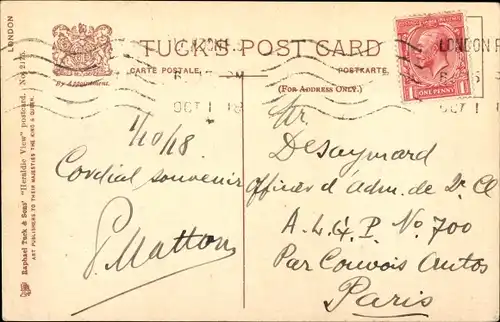 LONDON
TUCK'S POST CARD
CARTE POSTALE.
POSTKARTE.
(FOR ADDRESS ONLY.)
By Appointment.
Raphael Tuck & Sons' "Heraldic View" postcard. No. 2175.
ART PUBLISHERS TO THEIR MAJESTIES THE KING & QUEEN.
LONDON
OCT 1 18
LONDON
OCT 1
ONE PENNY
1/10/18
Cordial souvenir
P. Matton
Mr.
Desaymard
Officier d'adm. de 2e Cl
A. L. G. P. No. 700
Par Convois Autos
Paris